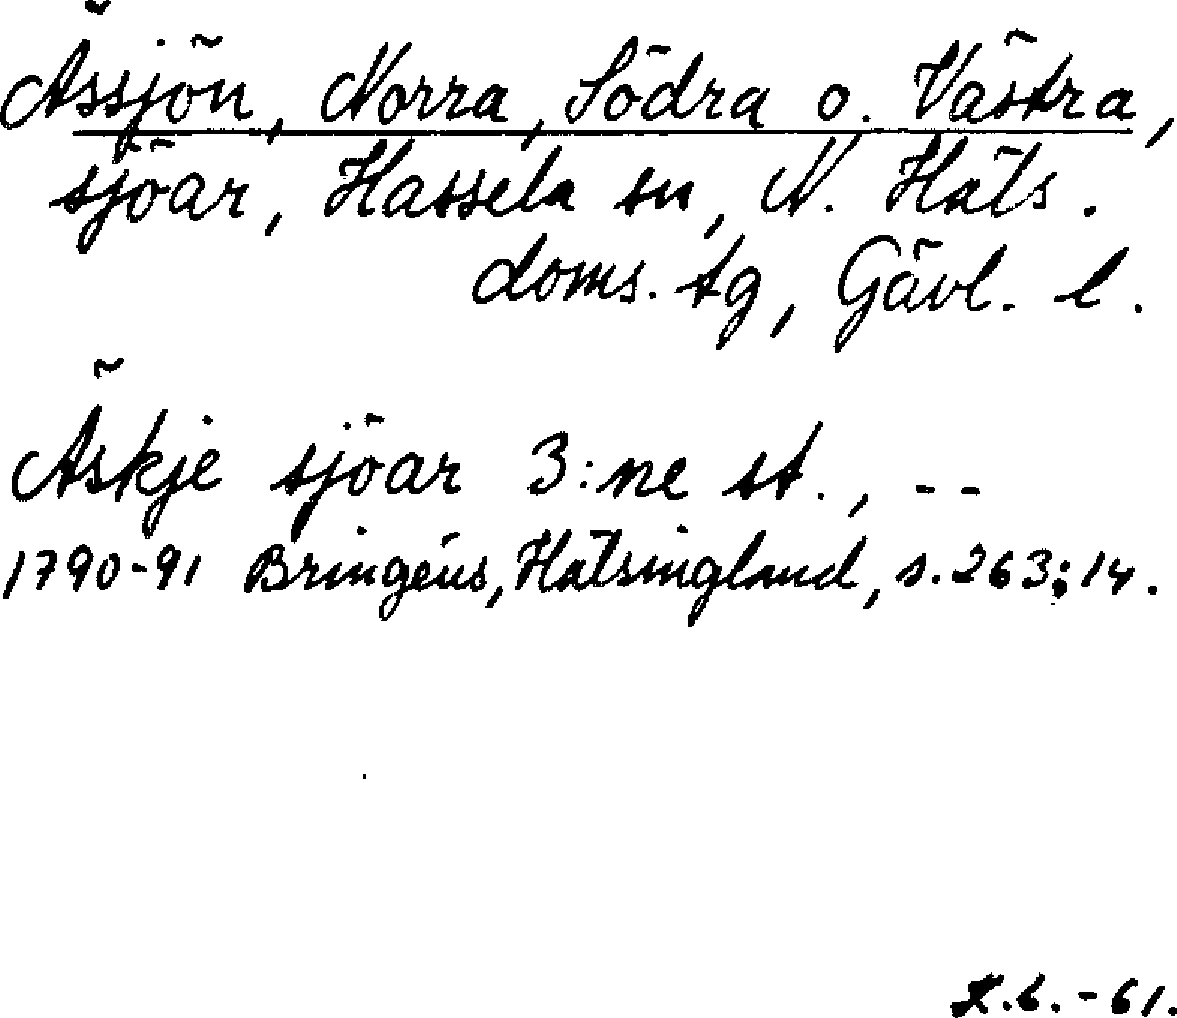 Ässjön, Norra, Södra o. Västra,
sjöar, Hassela sn, N. Häls.
doms. tg, Gävl. l.
Äskje sjöar 3:ne st., --
1790-91 Bringéus, Hälsingland, s. 263:14.
K.L.-61.